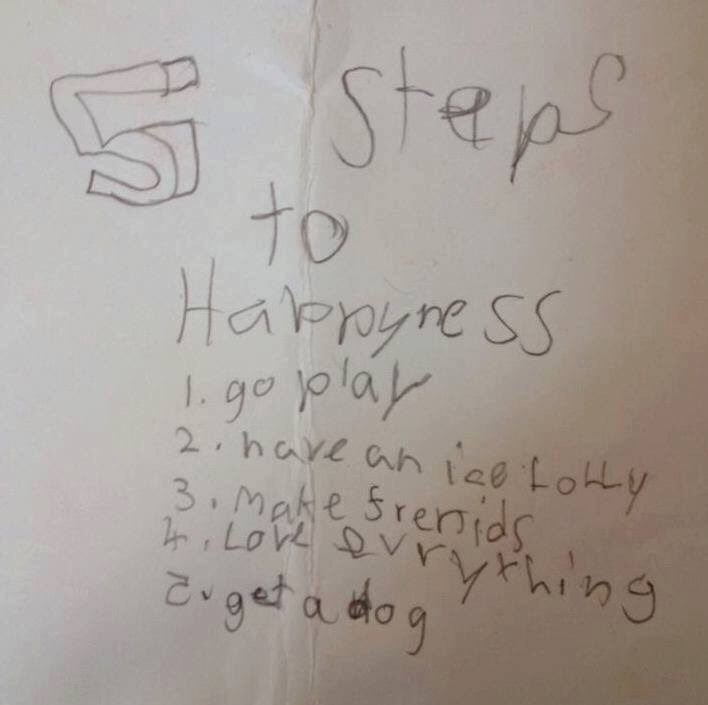 5 Steps
to
Happyness
1. go play
2. have an ice Lolly
3. Make frenids
4. Love evrything
5. get a dog